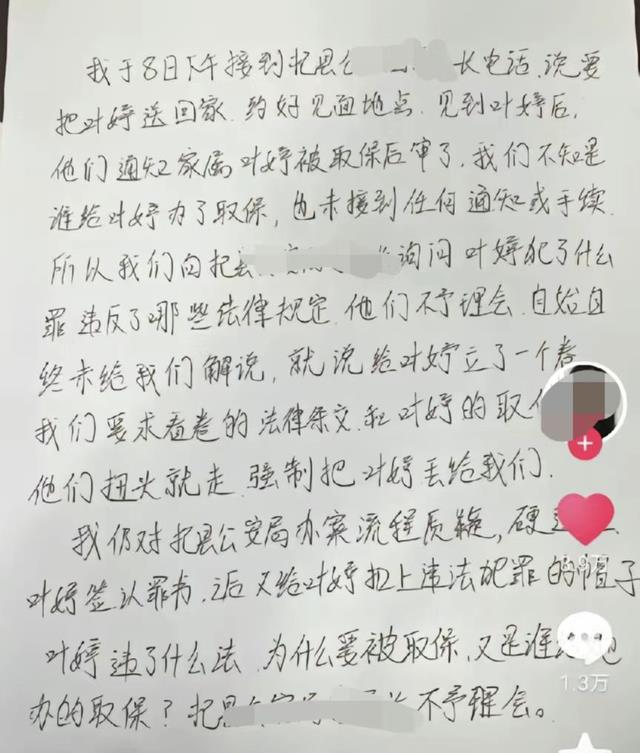 我于8日下午接到杞县公 长电话,说要
把叶婷送回家.约好见面地点.见到叶婷后,
他们通知家属叶婷被取保后审了,我们不知是
谁给叶婷办了取保,也未接到任何通知或手续.
所以我们向杞县 询问叶婷犯了什么
罪违反了哪些法律规定.他们不予理会.自始自
终未给我们解说,就说给叶婷立了一个卷
我们要求看卷的法律条文.和叶婷的取
他们扭头就走.强制把叶婷丢给我们.
我仍对杞县公安局办案流程质疑,硬
叶婷签认罪书.后又给叶婷扣上违法犯罪的帽子
叶婷违了什么法.为什么要被取保.又是谁
办的取保?杞县 不予理会。
1.3万